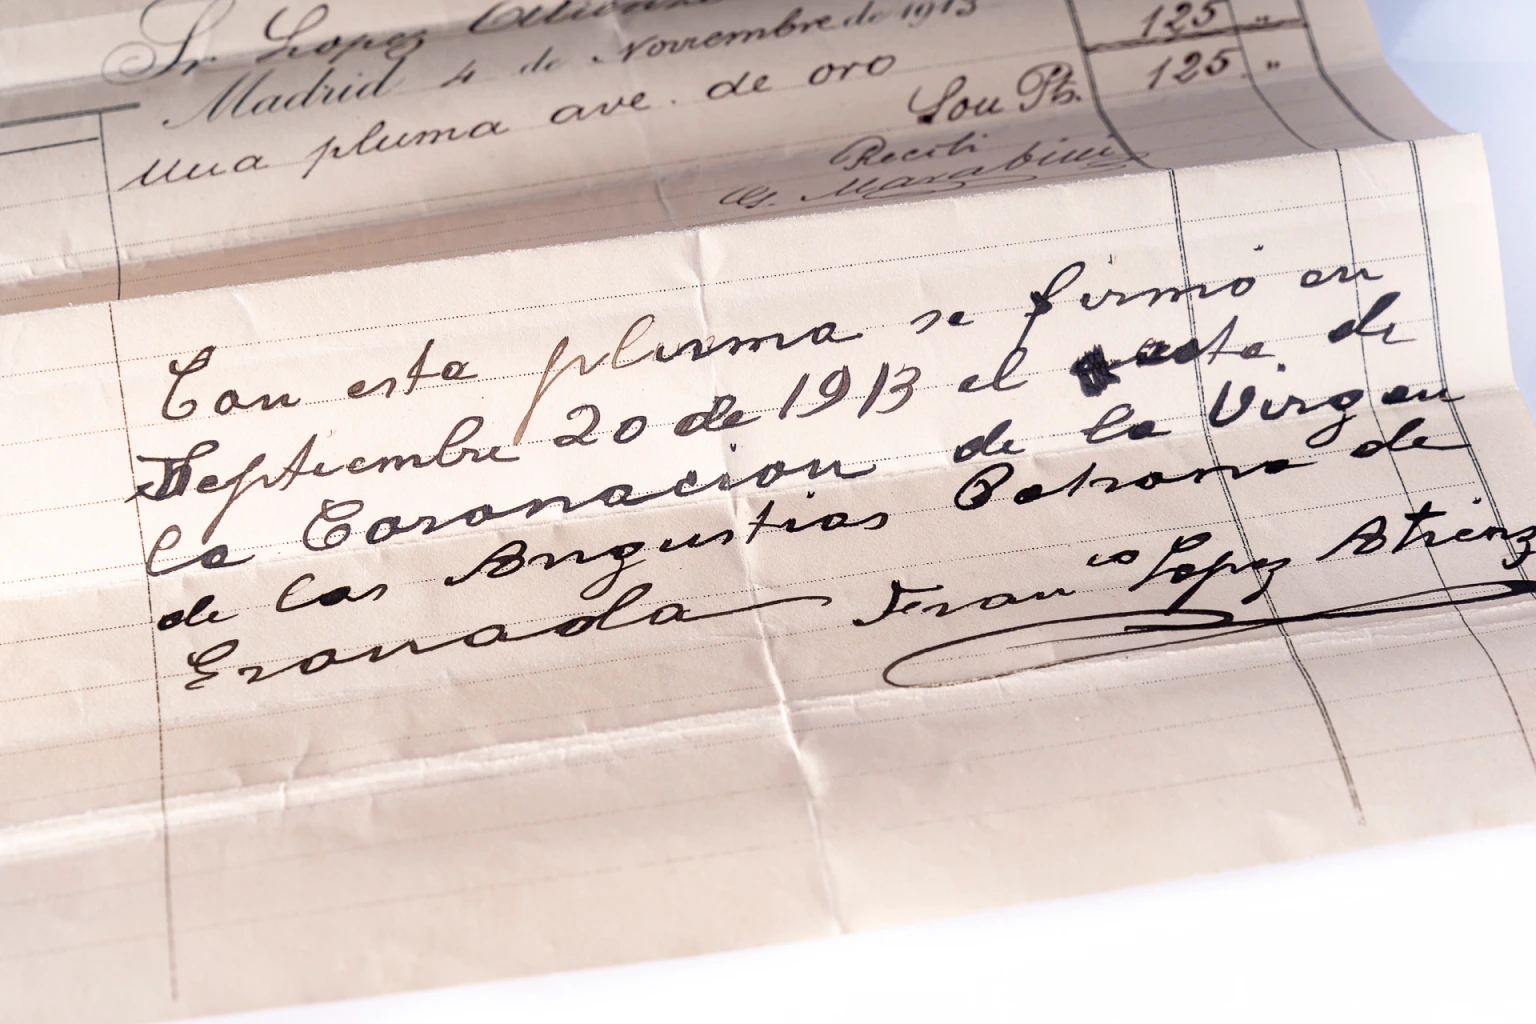 Sr. Lopez Atienza
Madrid 4 de Noviembre de 1913
125 "
una pluma ave. de oro
Son Pts. 125 "
Recibi
G. Marabini
Con esta pluma se firmó en
Septiembre 20 de 1913 el acta de
la Coronacion de la Virgen
de las Angustias Patrona de
Granada Fran co Lopez Atienz